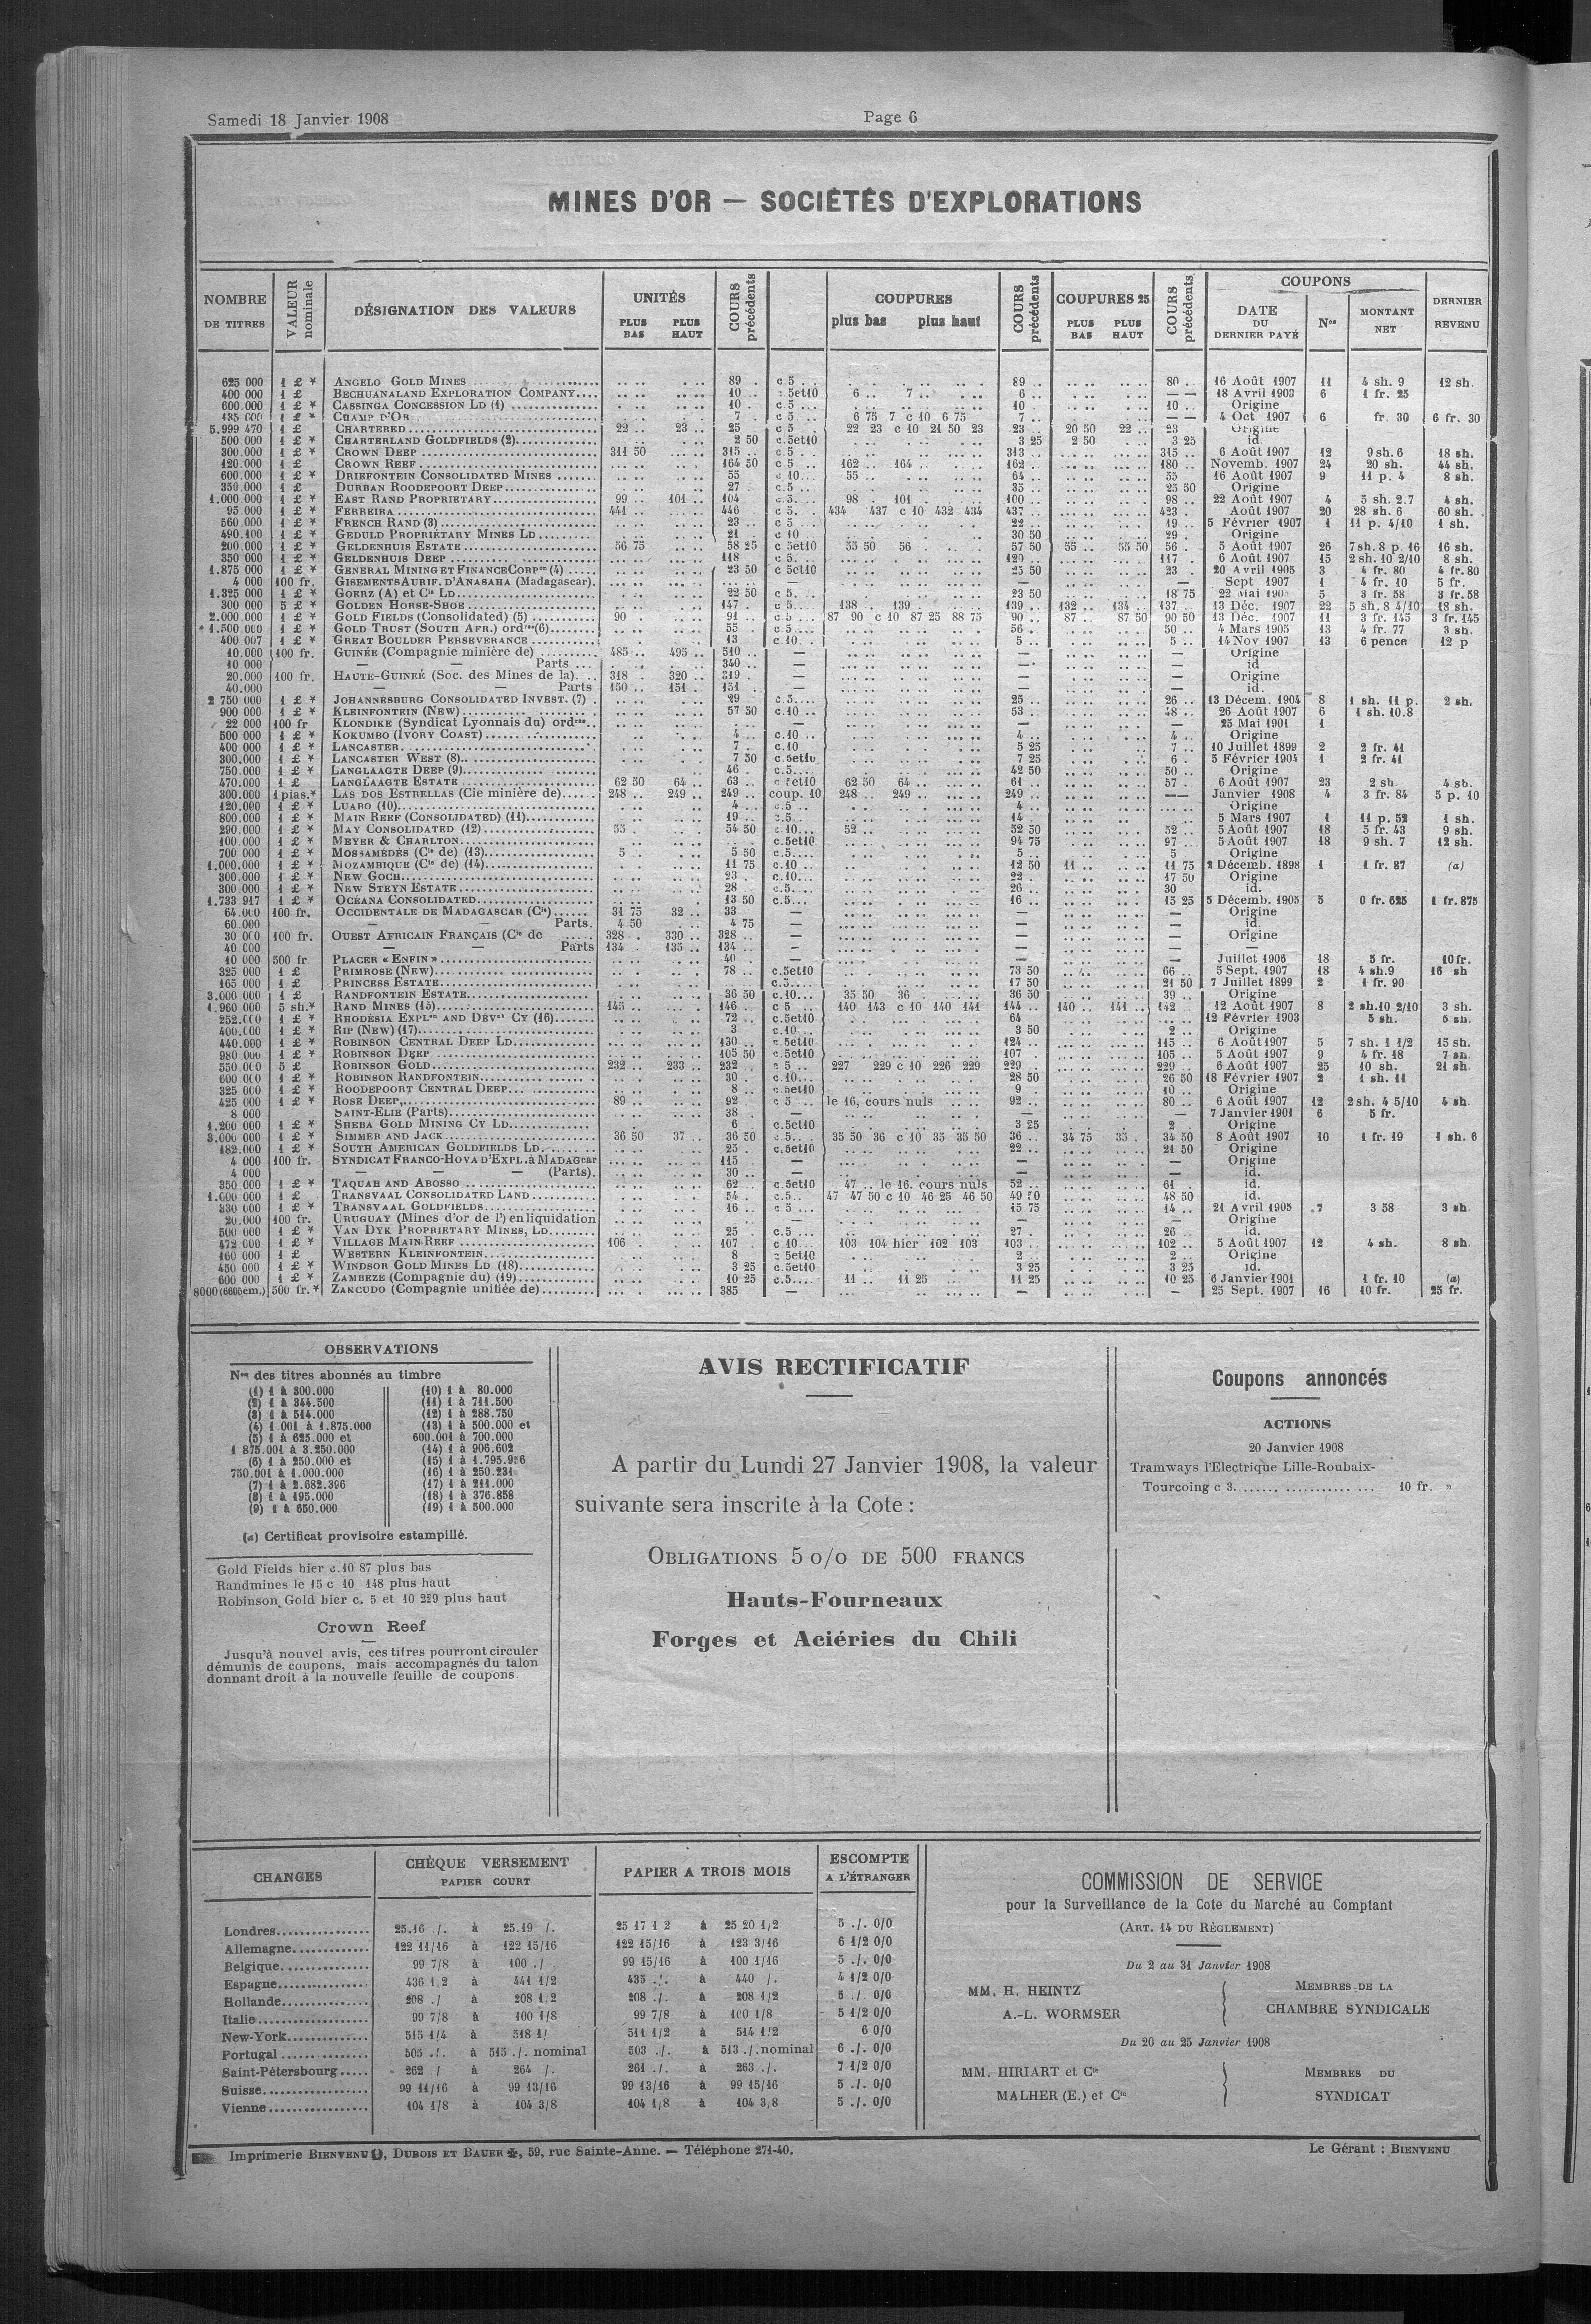 Samedi 18 Janvier 1908
Page 6
MINES D'OR — SOCIÉTÉS D'EXPLORATIONS
NOMBRE DE TITRES
VALEUR nominale
DÉSIGNATION DES VALEURS
UNITÉS PLUS BAS PLUS HAUT
COURS précédents
COUPURES plus bas plus haut
COURS précédents
COUPURES 25 PLUS BAS PLUS HAUT
COURS précédents
COUPONS
DATE DU DERNIER PAYÉ
Nos
MONTANT NET
DERNIER REVENU
625 000 1 £ * ANGELO GOLD MINES 89 c.5 89 80 16 Août 1907 11 4 sh. 9 12 sh.
400 000 1 £ BECHUANALAND EXPLORATION COMPANY 10 c.5et10 6 .. 7 .. 6 — — 18 Avril 1903 6 1 fr. 25
600.000 1 £ * CASSINGA CONCESSION LD (1) 10 c.5 10 10 Origine
135 000 1 £ * CHAMP D'OR 7 c 5 6 75 7 c 10 6 75 7 — — 4 Oct 1907 6 fr. 30 6 fr. 30
5.999 470 1 £ CHARTERED 22 .. 23 .. 25 c 5 22 23 c 10 21 50 23 23 20 50 22 .. 23 Origine
500 000 1 £ * CHARTERLAND GOLDFIELDS (2) 2 50 c.5et10 3 25 2 50 3 25 id.
300.000 1 £ * CROWN DEEP 311 50 315 c.5 313 315 6 Août 1907 12 9 sh. 6 18 sh.
120.000 1 £ CROWN REEF 164 50 c 5 162 .. 164 .. 162 180 Novemb. 1907 24 20 sh. 44 sh.
600.000 1 £ * DRIEFONTEIN CONSOLIDATED MINES 55 c 10 55 .. 64 55 16 Août 1907 9 11 p. 4 8 sh.
350.000 1 £ DURBAN ROODEPOORT DEEP 27 c.5 35 25 50 Origine
1.000.000 1 £ * EAST RAND PROPRIETARY 99 .. 101 .. 104 c.5 98 .. 101 .. 100 98 22 Août 1907 4 5 sh. 2.7 4 sh.
95.000 1 £ * FERREIRA 441 .. 446 c 5. 434 437 c 10 432 434 437 423 Août 1907 20 28 sh. 6 60 sh.
560.000 1 £ * FRENCH RAND (3) 23 c 5 22 19 5 Février 1907 1 11 p. 4/10 1 sh.
490.100 1 £ * GEDULD PROPRIETARY MINES LD 21 c 10 30 50 29 Origine
200.000 1 £ * GELDENHUIS ESTATE 56 75 58 25 c 5et10 55 50 56 57 50 55 .. 55 50 56 5 Août 1907 26 7 sh. 8 p. 16 16 sh.
350 000 1 £ * GELDENHUIS DEEP 118 c 5. 120 117 6 Août 1907 15 2 sh. 10 2/10 8 sh.
1.875 000 1 £ * GENERAL MINING ET FINANCE CORPon (4) 23 50 c 5et10 25 50 23 20 Avril 1905 3 4 fr. 80 4 fr. 80
4 000 100 fr. GISEMENTS AURIF. D'ANASAHA (Madagascar). — — — Sept 1907 1 4 fr. 10 5 fr.
1.325 000 1 £ * GOERZ (A) et Cie LD 22 50 c 5 23 50 18 75 22 Mai 5 3 fr. 58 3 fr. 58
300 000 5 £ * GOLDEN HORSE-SHOE 147 c 5 138 .. 139 139 132 .. 134 .. 137 13 Déc. 1907 22 5 sh. 8 4/10 18 sh.
2.000.000 1 £ * GOLD FIELDS (Consolidated) (5) 90 91 c.5 87 90 c 10 87 25 88 75 90 87 .. 87 50 90 50 13 Déc. 1907 11 3 fr. 145 3 fr. 145
1.500.000 1 £ * GOLD TRUST (SOUTH AFR.) ordres (6) 55 c 5 56 50 4 Mars 1905 13 4 fr. 77 3 sh.
400 007 1 £ * GREAT BOULDER PERSEVERANCE 13 c 10 5 5 14 Nov 1907 13 6 pence 12 p
10.000 100 fr. GUINÉE (Compagnie minière de) 485 .. 495 .. 510 — — — Origine
10 000 — — Parts 340 — — — id
20.000 100 fr. HAUTE-GUINÉE (Soc. des Mines de la) 318 320 .. 319 — — — Origine
40.000 — — Parts 150 .. 151 151 — — — id.
2 750 000 1 £ * JOHANNESBURG CONSOLIDATED INVEST. (7) 29 c.5 25 26 13 Décem. 1904 8 1 sh. 11 p. 2 sh.
900 000 1 £ * KLEINFONTEIN (NEW) 57 50 c.10 53 48 26 Août 1907 6 1 sh. 10.8
22 000 100 fr KLONDIKE (Syndicat Lyonnais du) ordres — — — 25 Mai 1901 1
500 000 1 £ * KOKUMBO (IVORY COAST) 4 c.10 4 4 Origine
400 000 1 £ * LANCASTER 7 c.10 5 25 7 10 Juillet 1899 2 2 fr. 41
300.000 1 £ * LANCASTER WEST (8) 7 50 c.5et10 7 25 6 5 Février 1904 1 2 fr. 41
750.000 1 £ * LANGLAAGTE DEEP (9) 46 c.5 42 50 50 Origine
470.000 1 £ LANGLAAGTE ESTATE 62 50 64 63 c 5et10 62 50 64 61 57 6 Août 1907 23 2 sh. 4 sh.
300.000 1 pias.* LAS DOS ESTRELLAS (Cie minière de) 248 .. 249 .. 249 coup. 10 248 .. 249 249 — — Janvier 1908 4 3 fr. 84 5 p. 10
120.000 1 £ * LUABO (10) 4 c.5 4 Origine
800.000 1 £ * MAIN REEF (CONSOLIDATED) (11) 19 c.5 14 5 Mars 1907 1 11 p. 52 1 sh.
290.000 1 £ * MAY CONSOLIDATED (12) 55 54 50 c.10 52 52 50 52 5 Août 1907 18 5 fr. 43 9 sh.
100.000 1 £ * MEYER & CHARLTON c.5et10 94 75 97 5 Août 1907 18 9 sh. 7 12 sh.
700 000 1 £ * MOSSAMÉDÈS (Cie de) (13) 5 5 50 c.5 5 5 Origine
1.000.000 1 £ * MOZAMBIQUE (Cie de) (14) 11 75 c.10 12 50 11 11 75 2 Décemb. 1898 1 1 fr. 87 (a)
300.000 1 £ * NEW GOCH 23 c.10 22 17 50 Origine
300.000 1 £ * NEW STEYN ESTATE 28 c.5 26 30 id.
1.733 917 1 £ * OCÉANA CONSOLIDATED 13 50 c.5 16 15 25 5 Décemb. 1905 5 0 fr. 625 1 fr. 875
64.000 100 fr. OCCIDENTALE DE MADAGASCAR (Cie) 31 75 32 33 — — — Origine
60.000 — Parts. 4 50 4 75 — — — id.
30 000 100 fr. OUEST AFRICAIN FRANÇAIS (Cie de 328 330 328 — — — Origine
40 000 — — Parts 134 135 134 — — — —
10 000 500 fr PLACER « ENFIN » 40 — — — Juillet 1906 18 5 fr. 10 fr.
325 000 1 £ PRIMROSE (NEW) 78 c.5et10 73 50 66 5 Sept. 1907 18 4 sh.9 16 sh
165 000 1 £ PRINCESS ESTATE c.5 17 50 21 50 7 Juillet 1899 2 1 fr. 90
3.000 000 1 £ RANDFONTEIN ESTATE 36 50 c.10 35 50 36 36 50 39 Origine
1.960 000 5 sh.* RAND MINES (15) 145 146 c 5 140 143 c 10 140 141 144 140 .. 141 .. 142 12 Août 1907 8 2 sh.10 2/10 3 sh.
252.000 1 £ * RHODÉSIA EXPLon AND DÉVnt CY (16) 72 c.5et10 64 12 Février 1903 5 sh. 5 sh.
400.000 1 £ * RIP (NEW) (17) 3 c.10 3 50 2 Origine
440.000 1 £ * ROBINSON CENTRAL DEEP LD 130 c.5et10 124 115 6 Août 1907 5 7 sh. 1 1/2 15 sh.
980 000 1 £ * ROBINSON DEEP 105 50 c.5et10 107 105 5 Août 1907 9 4 fr. 18 7 sh.
550.000 5 £ ROBINSON GOLD 232 .. 233 .. 232 c 5 227 229 c 10 226 229 229 229 6 Août 1907 25 10 sh. 21 sh.
600 000 1 £ * ROBINSON RANDFONTEIN 30 c.10 28 50 26 50 18 Février 1907 2 1 sh. 11
325 000 1 £ * ROODEPOORT CENTRAL DEEP 8 c.5et10 9 10 Origine
425 000 1 £ * ROSE DEEP 89 92 c 5 le 16, cours nuls 92 80 6 Août 1907 12 2 sh. 4 5/10 4 sh.
8 000 SAINT-ELIE (Parts) 38 — — 7 Janvier 1901 6 5 fr.
1.200 000 1 £ * SHEBA GOLD MINING CY LD 6 c.5et10 3 25 2 Origine
3.000 000 1 £ * SIMMER AND JACK 36 50 37 36 50 c.5 35 50 36 c 10 35 35 50 36 34 75 35 34 50 8 Août 1907 10 1 fr. 19 1 sh. 6
182.000 1 £ * SOUTH AMERICAN GOLDFIELDS LD 25 c.5et10 22 21 50 Origine
4 000 100 fr. SYNDICAT FRANCO-HOVA D'EXPL. à MADAGcar 115 — — — Origine
4 000 — — (Parts). 30 — — — id.
350 000 1 £ * TAQUAH AND ABOSSO 62 c.5et10 47 .. le 16. cours nuls 52 61 id.
1.000 000 1 £ TRANSVAAL CONSOLIDATED LAND 54 c.5 47 47 50 c 10 46 25 46 50 49 50 48 50 id.
330 000 1 £ * TRANSVAAL GOLDFIELDS 16 c 5 15 75 14 21 Avril 1905 7 3 58 3 sh.
20.000 100 fr. URUGUAY (Mines d'or de l') en liquidation — — — Origine
500 000 1 £ * VAN DYK PROPRIETARY MINES, LD 25 c.5 27 26 id.
472 000 1 £ * VILLAGE MAIN-REEF 106 107 c 10 103 104 hier 102 103 103 102 5 Août 1907 12 4 sh. 8 sh.
160 000 1 £ WESTERN KLEINFONTEIN 8 c 5et10 2 2 Origine
450 000 1 £ * WINDSOR GOLD MINES LD (18) 3 25 c.5et10 3 25 3 25 id.
600 000 1 £ * ZAMBEZE (Compagnie du) (19) 10 25 c.5 11 .. 11 25 11 25 10 25 6 Janvier 1901 1 fr. 10 (a)
8000 (6605 em.) 500 fr.* ZANCUDO (Compagnie unifiée de) 385 — — — 25 Sept. 1907 16 10 fr. 25 fr.
OBSERVATIONS
Nos des titres abonnés au timbre
(1) 1 à 300.000
(2) 1 à 344.500
(3) 1 à 514.000
(4) 1.001 à 1.875.000
(5) 1 à 625.000 et
1 875.001 à 3.250.000
(6) 1 à 250.000 et
750.001 à 1.000.000
(7) 1 à 2.682.396
(8) 1 à 195.000
(9) 1 à 650.000
(10) 1 à 80.000
(11) 1 à 711.500
(12) 1 à 288.750
(13) 1 à 500.000 et
600.001 à 700.000
(14) 1 à 906.602
(15) 1 à 1.795.956
(16) 1 à 250.231
(17) 1 à 211.000
(18) 1 à 376.858
(19) 1 à 500.000
(a) Certificat provisoire estampillé.
Gold Fields hier c.10 87 plus bas
Randmines le 15 c 10 148 plus haut
Robinson Gold hier c. 5 et 10 229 plus haut
Crown Reef
Jusqu'à nouvel avis, ces titres pourront circuler
démunis de coupons, mais accompagnés du talon
donnant droit à la nouvelle feuille de coupons
AVIS RECTIFICATIF
A partir du Lundi 27 Janvier 1908, la valeur
suivante sera inscrite à la Cote :
OBLIGATIONS 5 o/o DE 500 FRANCS
Hauts-Fourneaux
Forges et Aciéries du Chili
Coupons annoncés
ACTIONS
20 Janvier 1908
Tramways l'Electrique Lille-Roubaix-
Tourcoing c 3 10 fr. »
CHANGES
CHÈQUE VERSEMENT PAPIER COURT
PAPIER A TROIS MOIS
ESCOMPTE A L'ÉTRANGER
Londres 25.16 ./. à 25.19 /. 25 17 1 2 à 25 20 1/2 5 ./. 0/0
Allemagne 122 11/16 à 122 15/16 122 15/16 à 123 3/16 6 1/2 0/0
Belgique 99 7/8 à 100 ./. 99 15/16 à 100 1/16 5 ./. 0/0
Espagne 436 1,2 à 441 1/2 435 ./. à 440 /. 4 1/2 0/0
Hollande 208 ./ à 208 1/2 208 ./. à 208 1/2 5 ./. 0/0
Italie 99 7/8 à 100 1/8 99 7/8 à 100 1/8 5 1/2 0/0
New-York 515 1/4 à 518 1/ 511 1/2 à 514 1/2 6 0/0
Portugal 505 ./. à 515 ./. nominal 503 ./. à 513 ./. nominal 6 ./. 0/0
Saint-Pétersbourg 262 / à 264 /. 261 ./. à 263 ./. 7 1/2 0/0
Suisse 99 11/16 à 99 13/16 99 13/16 à 99 15/16 5 ./. 0/0
Vienne 104 1/8 à 104 3/8 104 1/8 à 104 3/8 5 ./. 0/0
COMMISSION DE SERVICE
pour la Surveillance de la Cote du Marché au Comptant
(ART. 14 DU RÈGLEMENT)
Du 2 au 31 Janvier 1908
MM. H. HEINTZ
A.-L. WORMSER
MEMBRES DE LA
CHAMBRE SYNDICALE
Du 20 au 25 Janvier 1908
MM. HIRIART et Cie
MALHER (E.) et Cie
MEMBRES DU
SYNDICAT
Imprimerie BIENVENU, DUBOIS ET BAUER, 59, rue Sainte-Anne. — Téléphone 271-40.
Le Gérant : BIENVENU